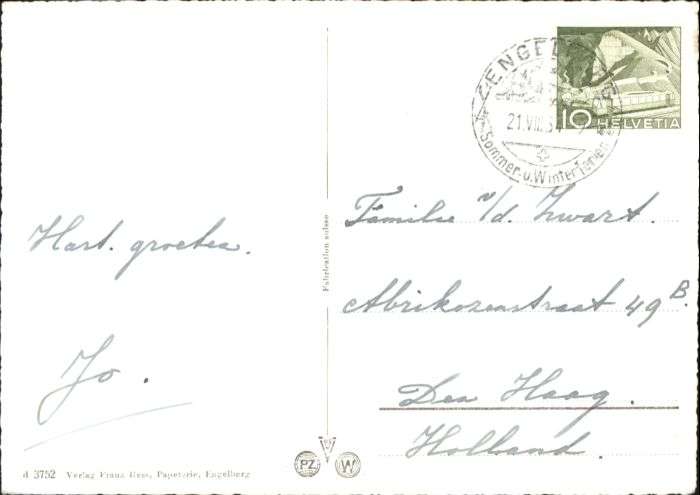 ENGELBERG
21.VIII.5
Sommer- u. Winterferien
10 HELVETIA
Hart. groeten.
Jo.
Fabrication suisse
Familie v/d. Zwart.
Abrikozenstraat 49 B.
Den Haag.
Holland.
d 3752 Verlag Franz Hess, Papeterie, Engelberg
PZ
W